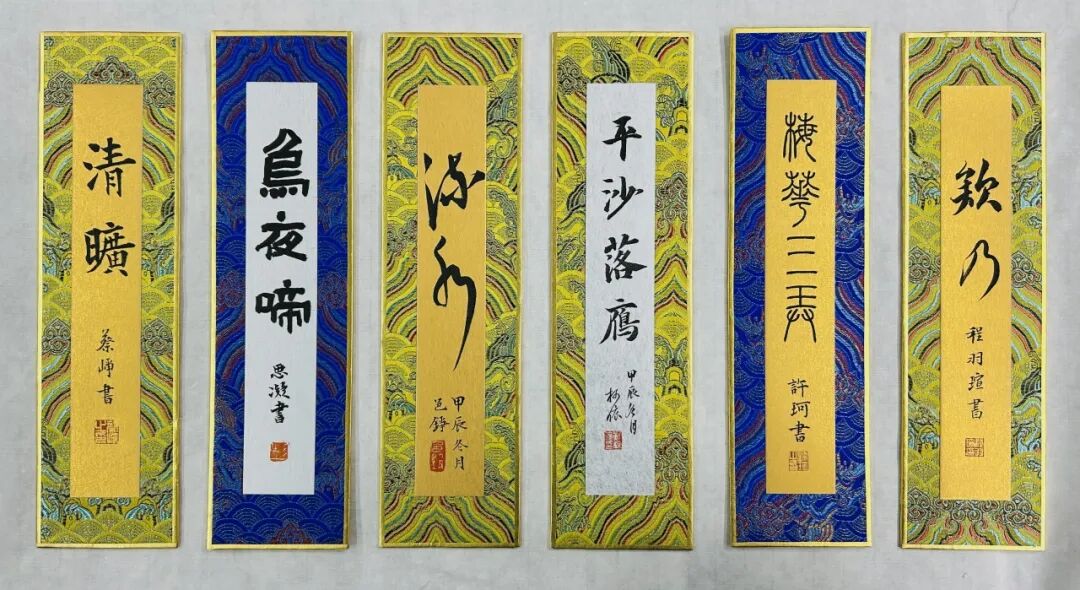 清曠
蔡崢書
烏夜啼
思凝書
流水
甲辰冬月
平沙落鴈
甲辰冬月
梅華三弄
許珂書
欸乃
程羽瑄書